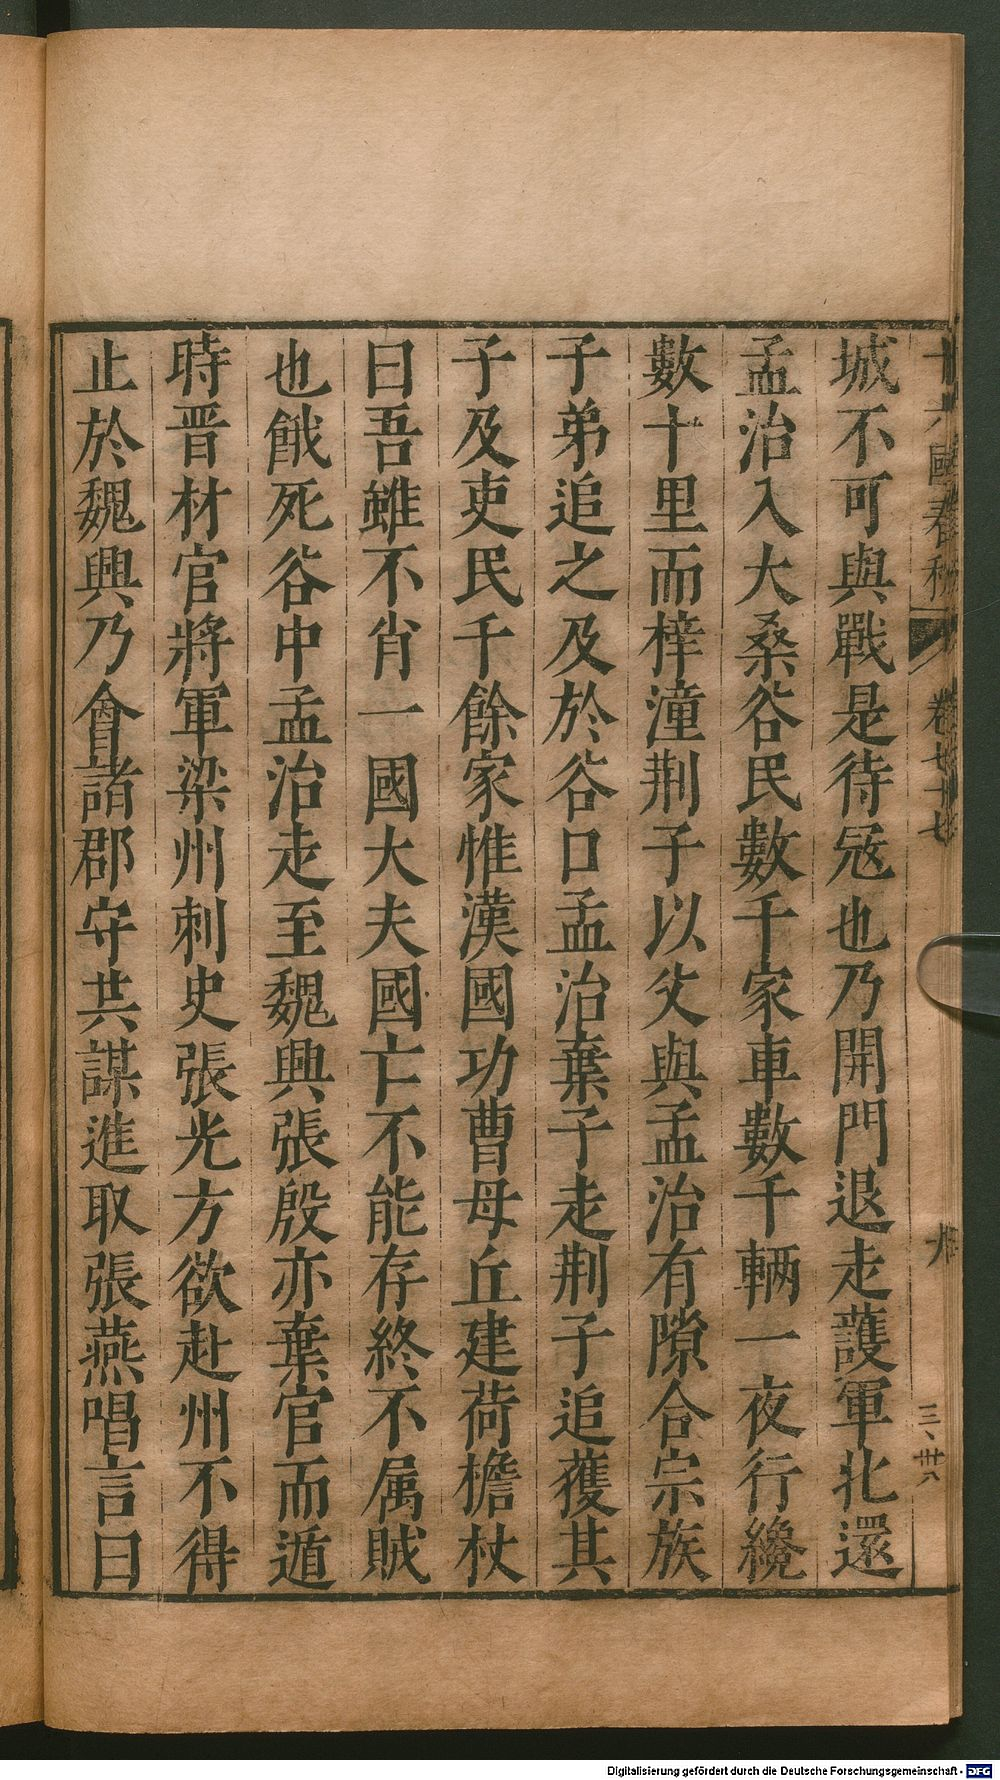 十六國春秋 卷七十七 九
城不可與戰是待冦也乃開門退走護軍北還
孟治入大桑谷民數千家車數千輛一夜行纔
數十里而梓潼荆子以父與孟治有隙合宗族
子弟追之及於谷口孟治棄子走荆子追獲其
子及吏民千餘家惟漢國功曹母丘建荷檐杖
曰吾雖不肖一國大夫國亡不能存終不属賊
也餓死谷中孟治走至魏興張殷亦棄官而遁
時晋材官將軍梁州刺史張光方欲赴州不得
止於魏興乃會諸郡守共謀進取張燕唱言曰
Digitalisierung gefördert durch die Deutsche Forschungsgemeinschaft - DFG